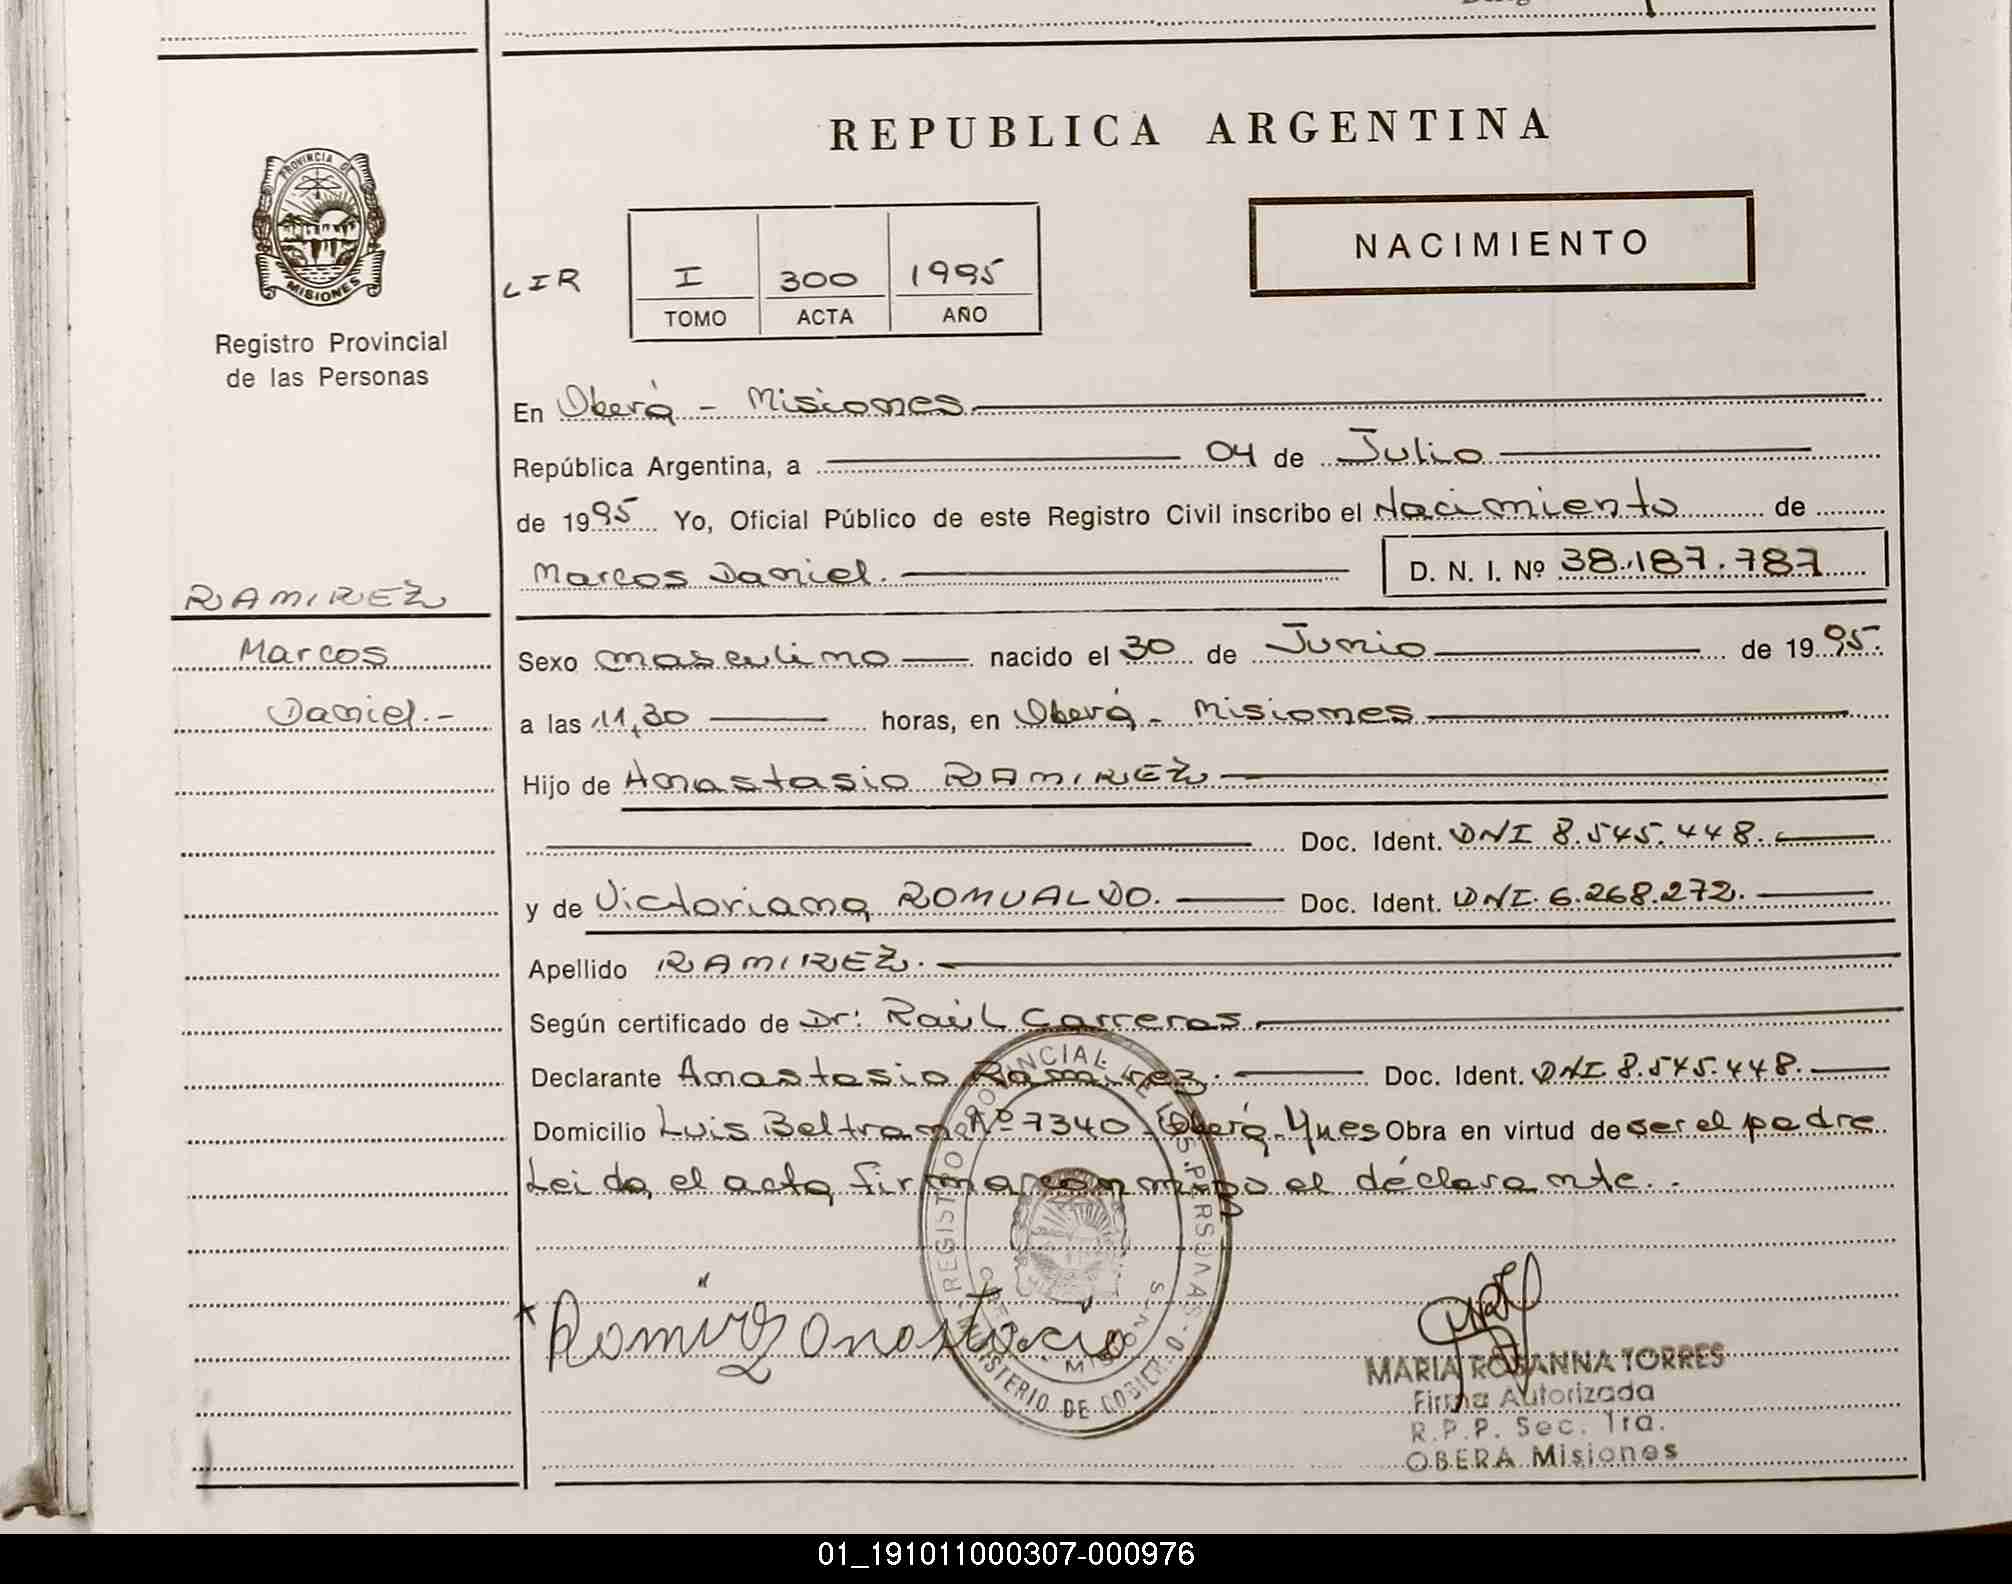 REPUBLICA ARGENTINA
PROVINCIA DE
MISIONES
Registro Provincial
de las Personas
NACIMIENTO
LIR I 300 1995
TOMO ACTA AÑO
En Oberá - Misiones
República Argentina, a 04 de Julio
de 1995 Yo, Oficial Público de este Registro Civil inscribo el Nacimiento de
Marcos Daniel. D. N. I. Nº 38.187.787
RAMIREZ
Marcos
Daniel.-
Sexo masculino nacido el 30 de Junio de 1995.
a las 11,30 horas, en Oberá - Misiones
Hijo de Anastasio RAMIREZ
Doc. Ident. DNI 8.545.448.
y de Victoriana ROMUALDO. Doc. Ident. DNI. 6.268.272.
Apellido RAMIREZ.
Según certificado de Dr: Raúl Carreras
Declarante Anastasio Ramirez. Doc. Ident. DNI 8.545.448.
Domicilio Luis Beltran Nº 7340 Oberá - Mnes Obra en virtud de ser el padre
Leida el acta firma conmigo el declarante..
REGISTRO PROVINCIAL DE LAS PERSONAS
MINISTERIO DE GOBIERNO
MISIONES
Ramirez anastacio
MARIA ROSANNA TORRES
Firma Autorizada
R.P.P. Sec. 1ra.
OBERA Misiones
01_191011000307-000976